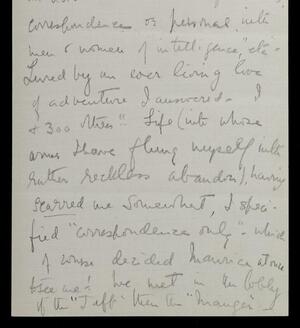 correspondence or personal with
men & women of intelligence", etc-
Lured by an ever living love
of adventure I answered - I
& 300 others" Life (into whose
arms I have flung myself with
rather reckless abandon), having
scarred me somewhat, I speci-
fied "correspondence only" - which
of course decided Maurice at once
to see me! We met in the lobby
of the "Jeff" then the "Manger" -